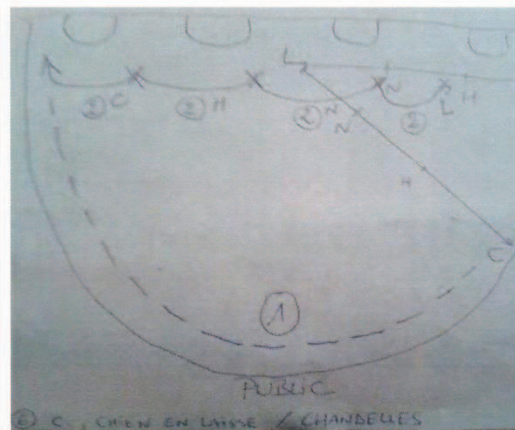 L
② C ② H ② N N ② L H
N
H
C
①
PUBLIC
② C, CHIEN EN LAISSE / CHANDELLES